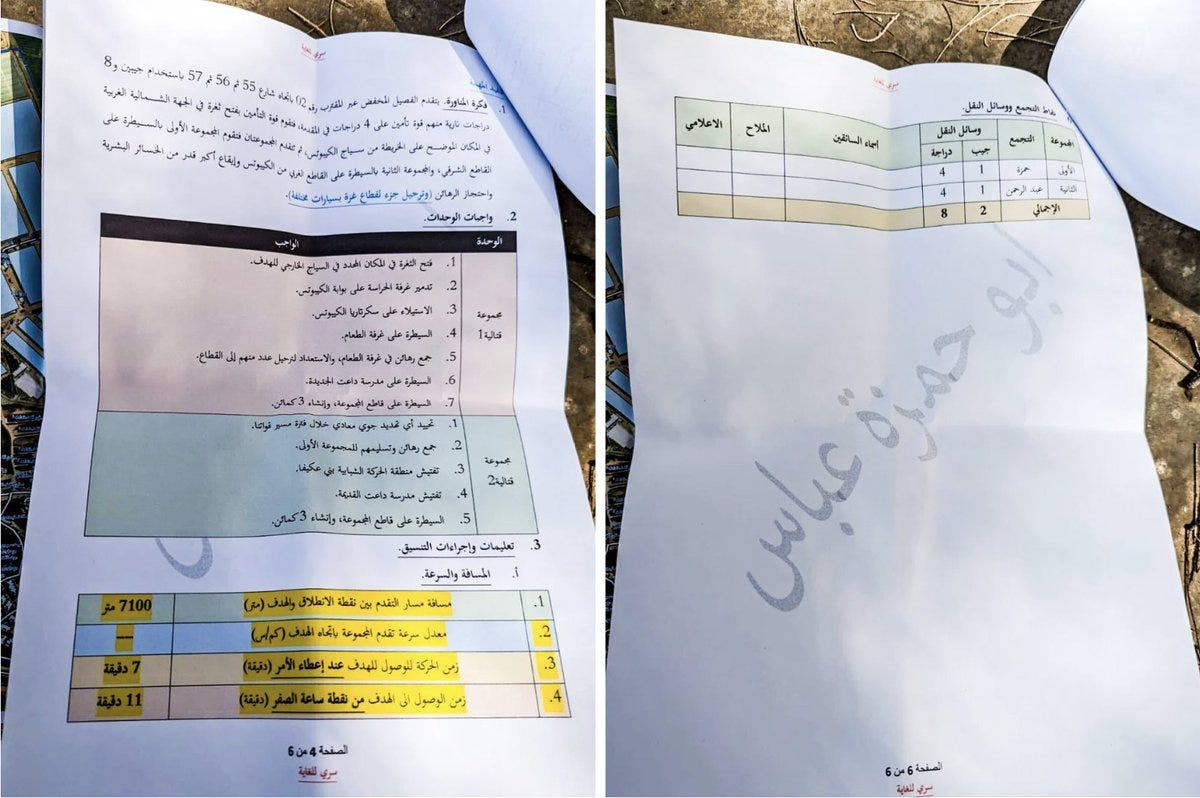 سري للغاية
المهمة
1. فكرة المناورة. يتقدم الفصيل المخفض عبر المقترب رقم 02 باتجاه شارع 55 ثم 56 ثم 57 باستخدام جيبين و8
دراجات نارية منهم قوة تأمين على 4 دراجات في المقدمة، فتقوم قوة التأمين بفتح ثغرة في الجهة الشمالية الغربية
في المكان الموضح على الخريطة من سياج الكيبوتس، ثم تتقدم المجموعتان فتقوم المجموعة الأولى بالسيطرة على
القاطع الشرقي، والمجموعة الثانية بالسيطرة على القاطع الغربي من الكيبوتس وإيقاع أكبر قدر من الخسائر البشرية
واحتجاز الرهائن (وترحيل جزء لقطاع غزة بسيارات مختلفة).
2. واجبات الوحدات.
الوحدة الواجب
مجموعة قتالية1
1. فتح الثغرة في المكان المحدد في السياج الخارجي للهدف.
2. تدمير غرفة الحراسة على بوابة الكيبوتس.
3. الاستيلاء على سكرتاريا الكيبوتس.
4. السيطرة على غرفة الطعام.
5. جمع رهائن في غرفة الطعام، والاستعداد لترحيل عدد منهم إلى القطاع.
6. السيطرة على مدرسة داعت الجديدة.
7. السيطرة على قاطع المجموعة، وإنشاء 3 كمائن.
مجموعة قتالية2
1. تحييد أي تهديد جوي معادي خلال فترة مسير قواتنا.
2. جمع رهائن وتسليمهم للمجموعة الأولى.
3. تفتيش منطقة الحركة الشبابية بني عكيفا.
4. تفتيش مدرسة داعت القديمة.
5. السيطرة على قاطع المجموعة، وإنشاء 3 كمائن.
3. تعليمات وإجراءات التنسيق.
أ. المسافة والسرعة.
1. مسافة مسار التقدم بين نقطة الانطلاق والهدف (متر) 7100 متر
2. معدل سرعة تقدم المجموعة باتجاه الهدف (كم/س) ---
3. زمن الحركة للوصول للهدف عند إعطاء الأمر (دقيقة) 7 دقيقة
4. زمن الوصول الى الهدف من نقطة ساعة الصفر (دقيقة) 11 دقيقة
الصفحة 4 من 6
سري للغاية
سري للغاية
نقاط التجمع ووسائل النقل.
المجموعة التجمع وسائل النقل اسماء السائقين الملاح الاعلامي
جيب دراجة
الأولى حمزة 1 4
الثانية عبد الرحمن 1 4
الإجمالي 2 8
ابو حمزة عباس
الصفحة 6 من 6
سري للغاية